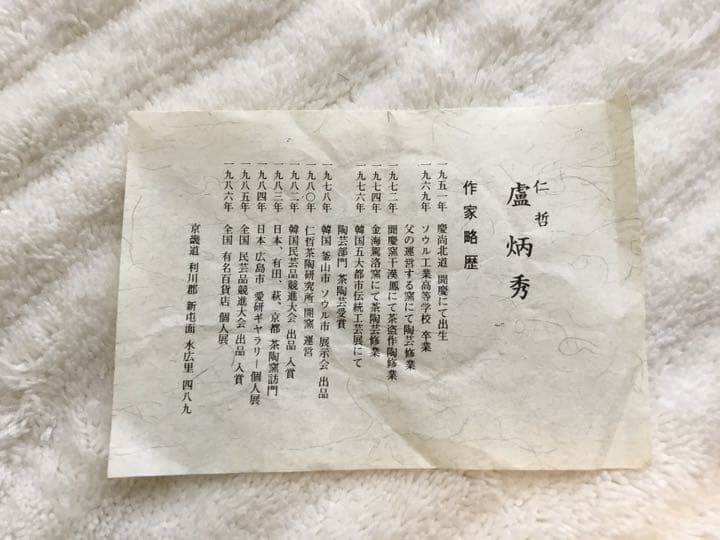 仁哲
盧炳秀
作家略歴
一九五一年 慶尚北道 聞慶にて出生
一九六九年 ソウル工業高等学校 卒業
父の運営する窯にて陶芸修業
一九七二年 聞慶窯干漢鳳にて茶盌作陶修業
一九七四年 金海駕洛窯にて茶陶芸修業
一九七六年 韓国五大都市伝統工芸展にて
陶芸部門 茶陶芸受賞
一九七八年 韓国 釜山市 ソウル市 展示会 出品
一九八〇年 仁哲茶陶研究所開窯 運営
一九八二年 韓国民芸品競進大会 出品 入賞
一九八三年 日本、有田、萩、京都 茶陶窯訪門
一九八四年 日本 広島市 愛研ギャラリー個人展
一九八五年 全国 民芸品競進大会 出品 入賞
一九八六年 全国 有名百貨店 個人展
京畿道 利川郡 新屯面 水広里 四八九